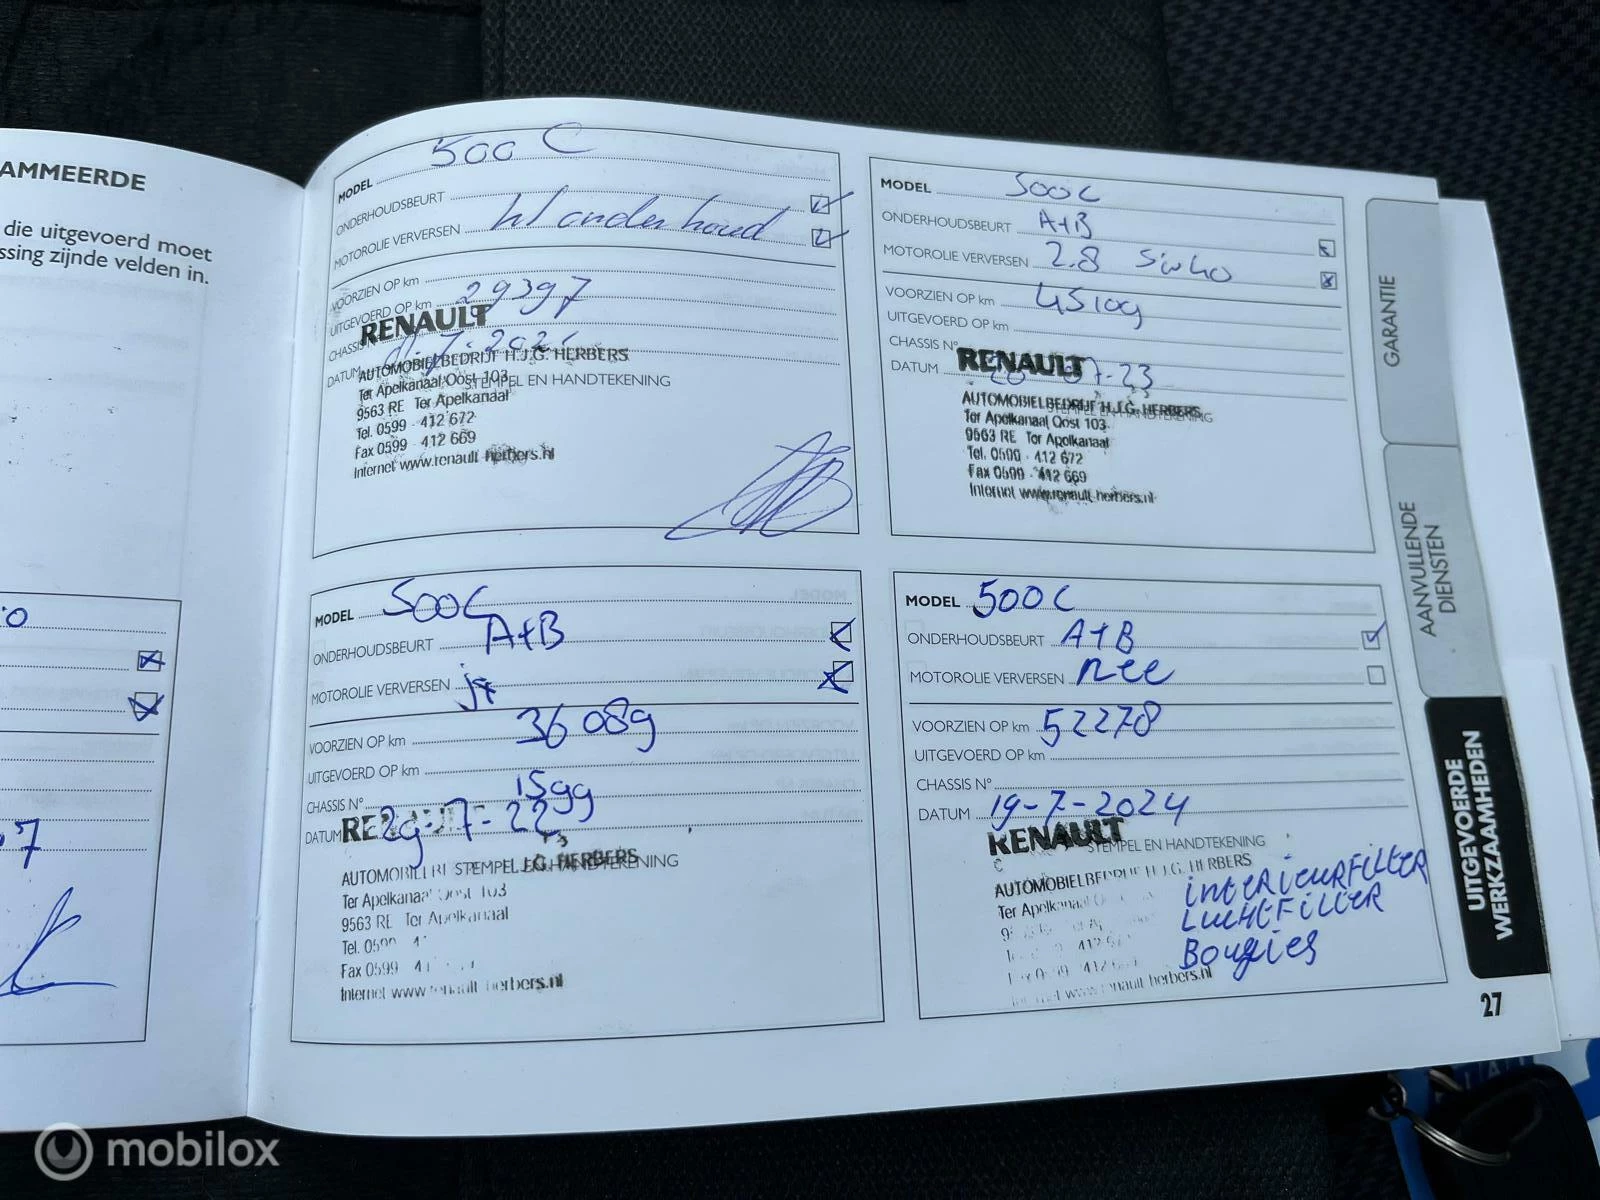 AMMEERDE
die uitgevoerd moet
ssing zijnde velden in.
MODEL 500 C
ONDERHOUDSBEURT
MOTOROLIE VERVERSEN
VOORZIEN OP km
UITGEVOERD OP km 29397
CHASSIS N°
DATUM
RENAULT
AUTOMOBIELBEDRIJF H.J.G. HERBERS
STEMPEL EN HANDTEKENING
Ter Apelkanaal Oost 103
9563 RE Ter Apelkanaal
Tel. 0599 - 412 672
Fax 0599 - 412 669
Internet www.renault-herbers.nl
MODEL 500C
ONDERHOUDSBEURT A+B
MOTOROLIE VERVERSEN 2.8
VOORZIEN OP km 45109
UITGEVOERD OP km
CHASSIS N°
DATUM 07-23
RENAULT
AUTOMOBIELBEDRIJF H.J.G. HERBERS
STEMPEL EN HANDTEKENING
Ter Apelkanaal Oost 103
9563 RE Ter Apelkanaal
Tel. 0599 - 412 672
Fax 0599 - 412 669
Internet www.renault-herbers.nl
MODEL 500C
ONDERHOUDSBEURT A+B
MOTOROLIE VERVERSEN ja
VOORZIEN OP km 36089
UITGEVOERD OP km
CHASSIS N° 1599
DATUM 29-7-22
STEMPEL EN HANDTEKENING
J.G. HERBERS
Ter Apelkanaal Oost 103
9563 RE Ter Apelkanaal
Tel. 0599
Fax 0599
Internet www.renault-herbers.nl
MODEL 500C
ONDERHOUDSBEURT A+B
MOTOROLIE VERVERSEN nee
VOORZIEN OP km 52278
UITGEVOERD OP km
CHASSIS N°
DATUM 19-7-2024
RENAULT
STEMPEL EN HANDTEKENING
AUTOMOBIELBEDRIJF H.J.G. HERBERS
interieurfilter
Luchtfilter
Bougies
GARANTIE
AANVULLENDE
DIENSTEN
UITGEVOERDE
WERKZAAMHEDEN
27
mobilox